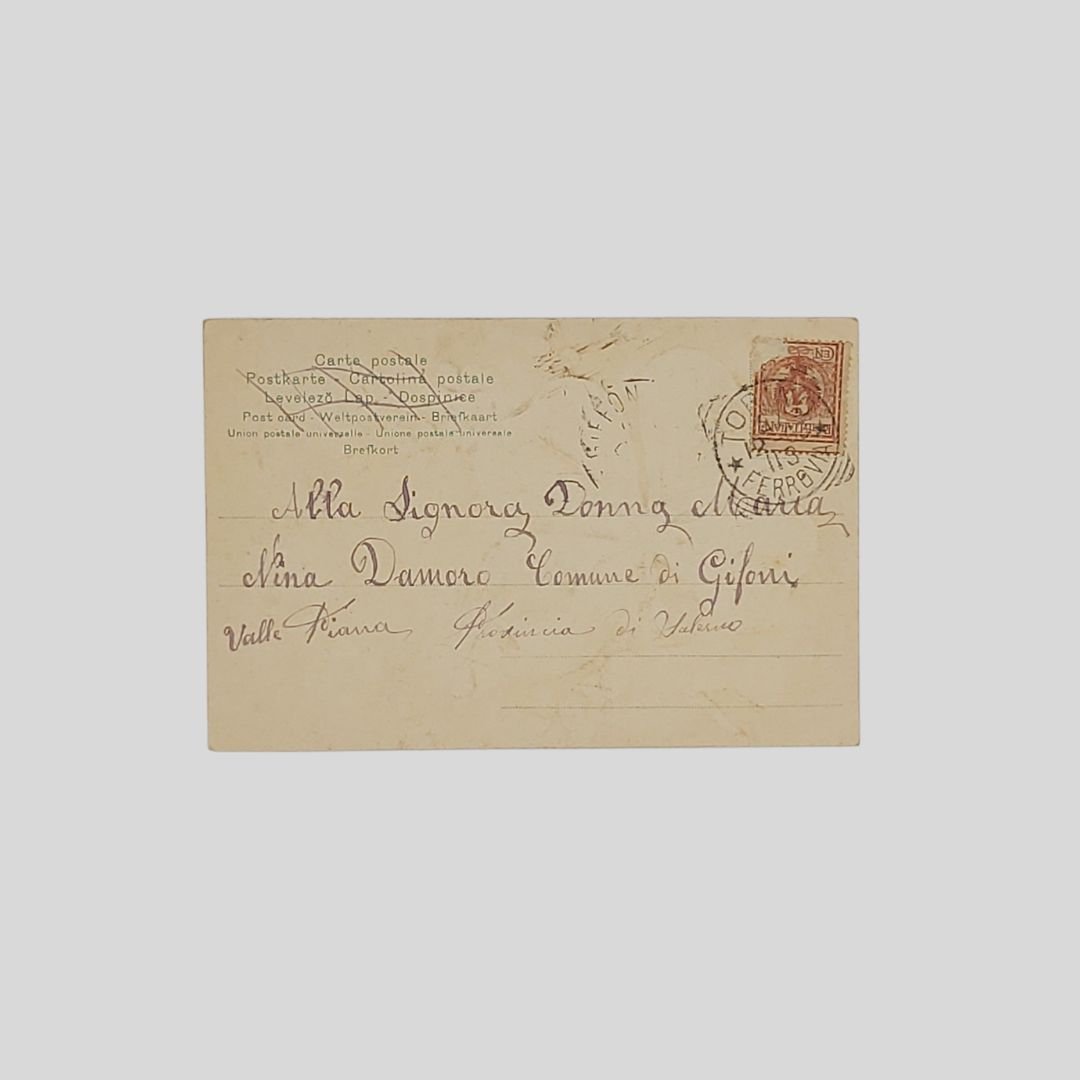 Carte postale
Postkarte - Cartolina postale
Levelező Lap. - Dospinice
Post card - Weltpostverein - Briefkaart
Union postale universelle - Unione postale universale
Brefkort
GIFFON
TOR
FERROVIA
Alla Signora Donna Maria
Nina Damoro Comune di Gifoni
Valle Piana Provincia di Salerno